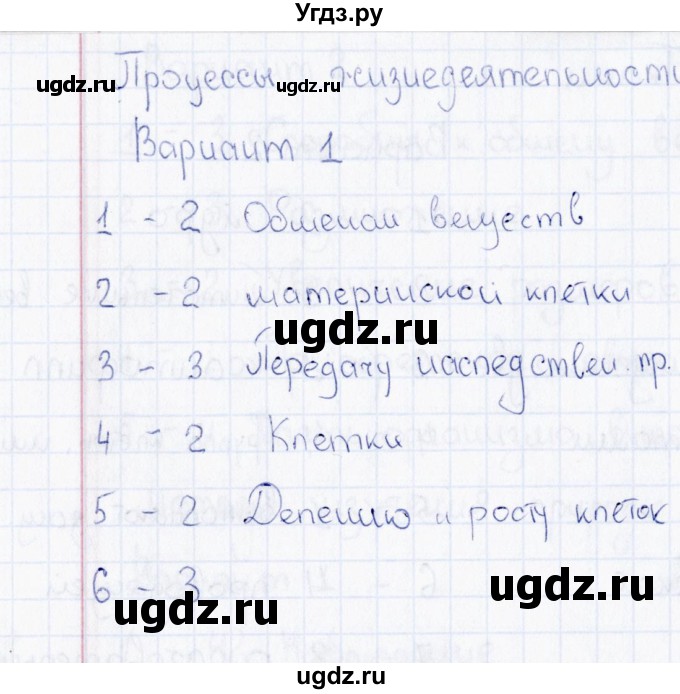 Угдз.ру
Процессы жизнедеятельности
ugdz.ru ugdz.ru
Вариант 1
1 - 2 Обменом веществ
2 - 2 материнской клетки
ugdz.ru
3 - 3 Передачу наследствен. пр.
4 - 2 Клетки
5 - 2 Делению и росту клеток
6 - 3
ugdz.ru ugdz.ru
ugdz.ru